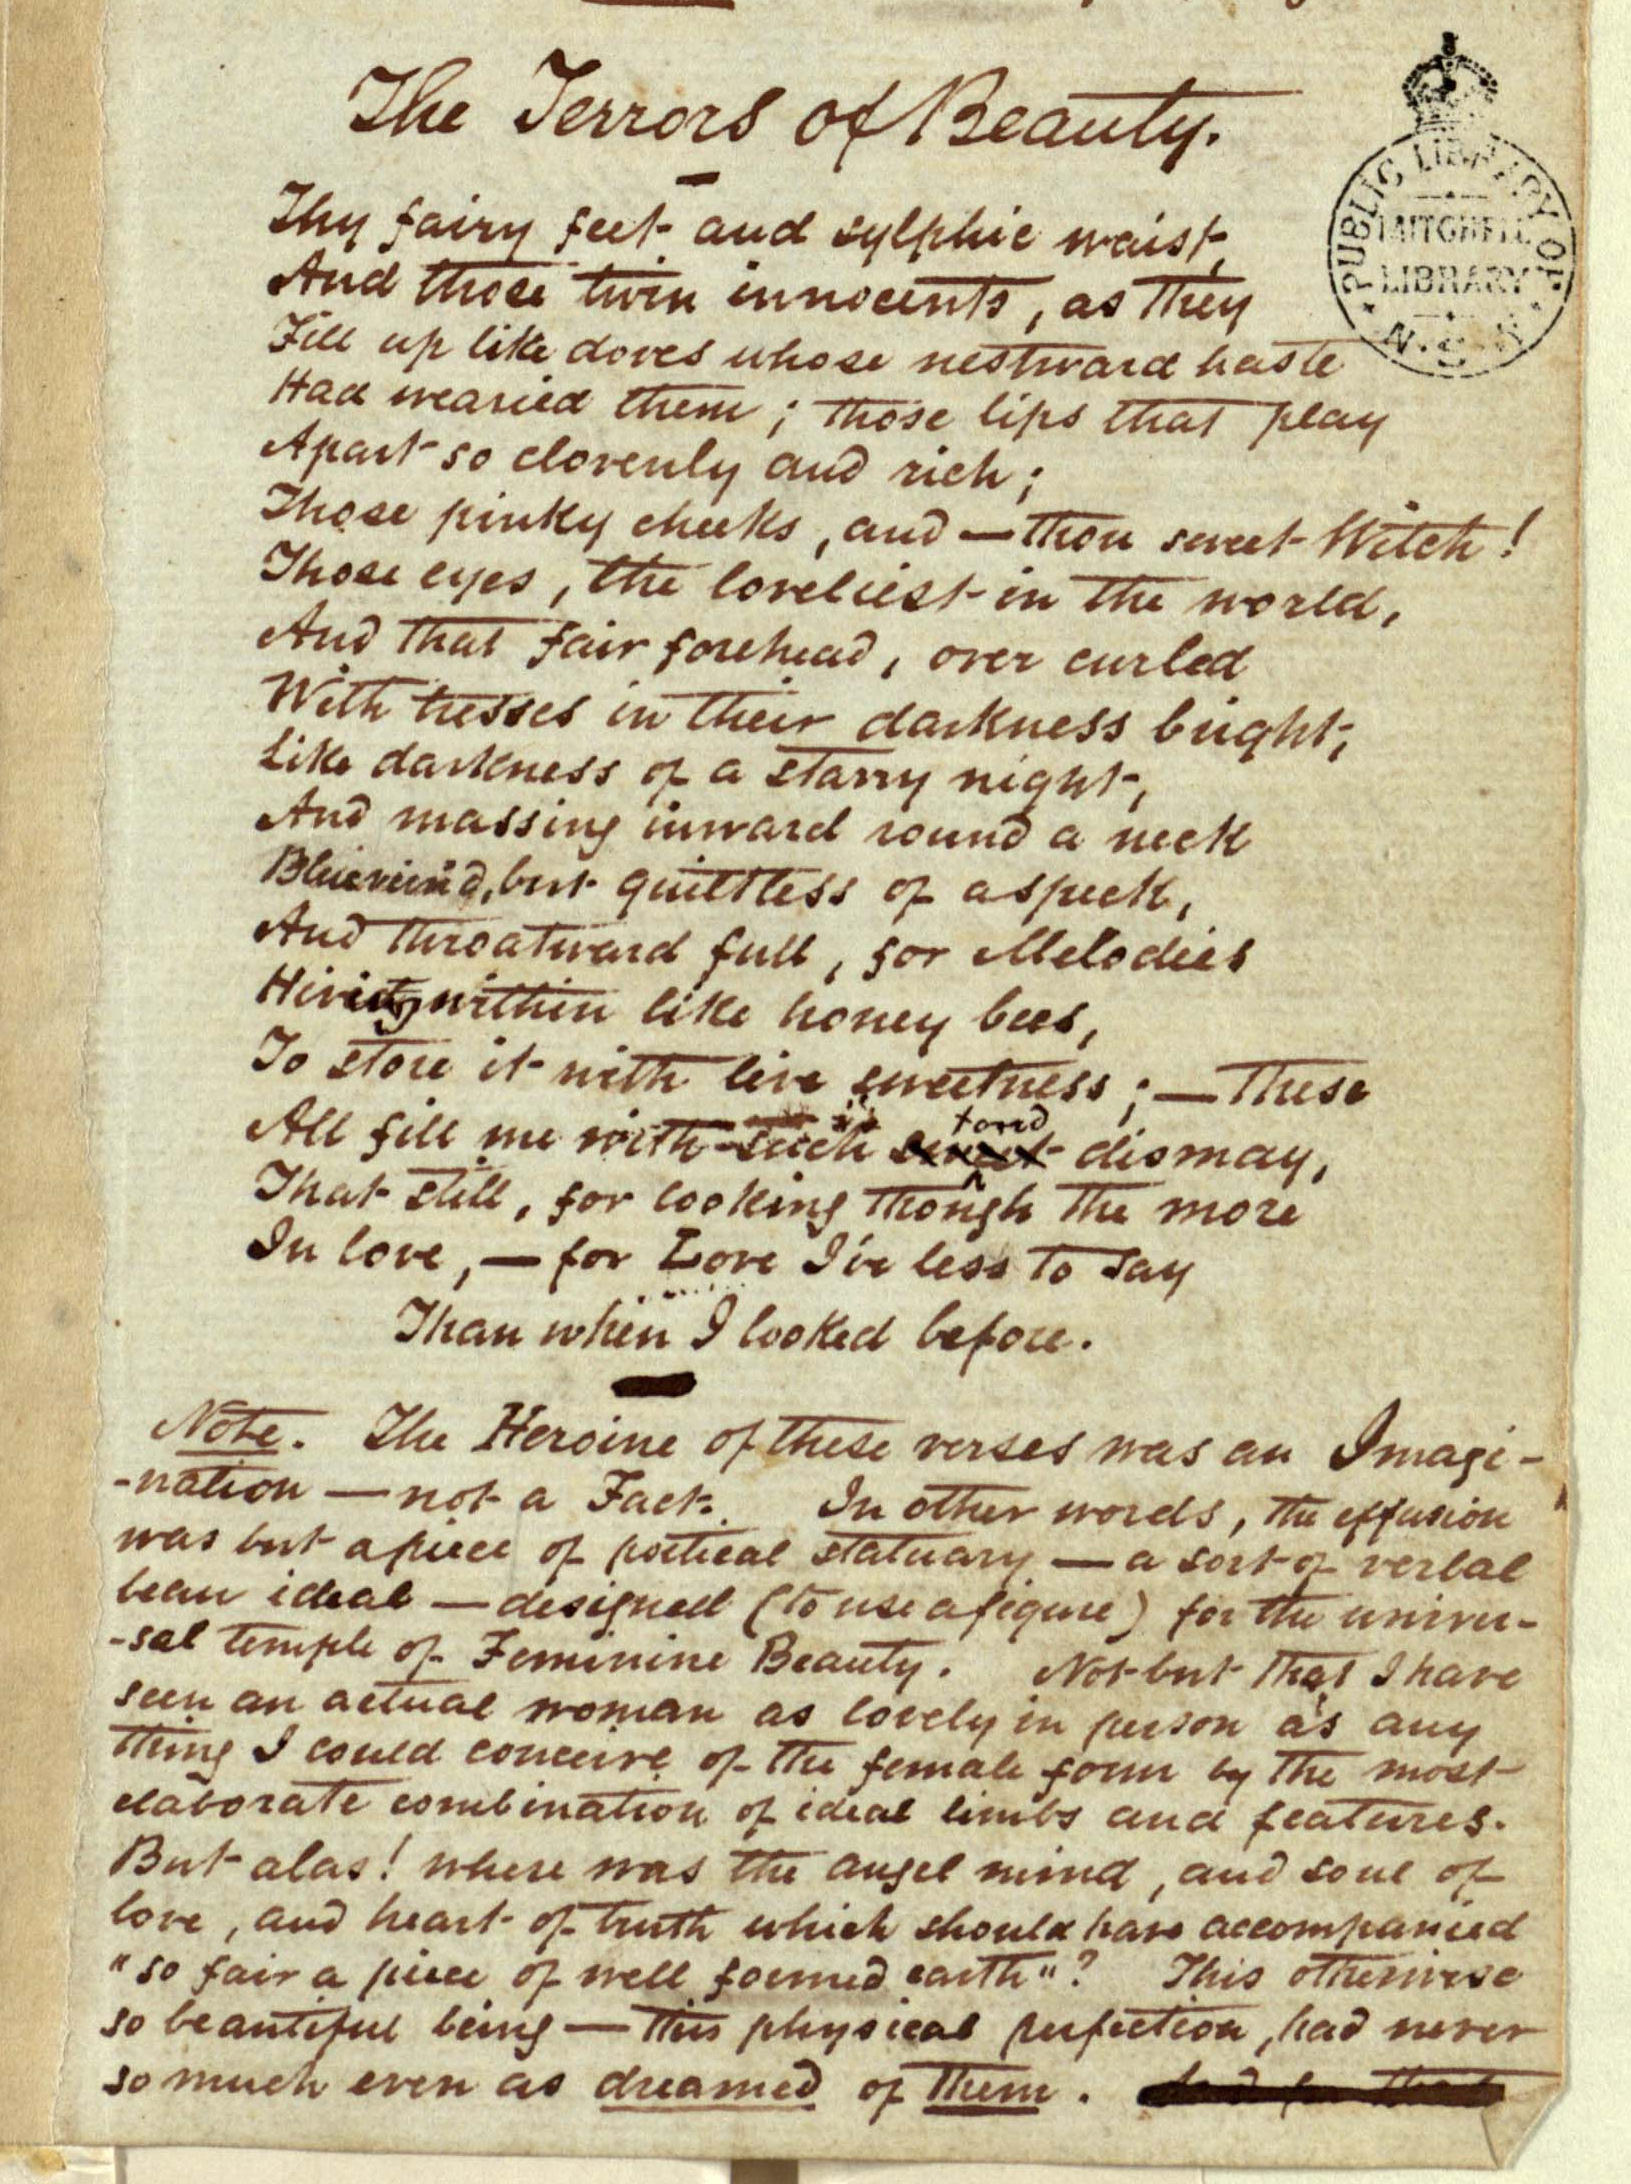 The Terrors of Beauty.
Thy fairy feet and sylphic waist,
And those twin innocents, as they
Fill up like doves whose nestward haste
Had wearied them; those lips that play
Apart so clovenly and rich;
Those pinky cheeks, and — thou sweet Witch!
Those eyes, the loveliest in the world,
And that fair forehead, over curled
With tresses in their darkness bright,
Like darkness of a starry night,
And massing inward round a neck
Bluevein'd, but guiltless of a speck,
And throatward full, for Melodies
Hiving within like honey bees,
To store it with live sweetness; — These
All fill me with such sweet toned dismay,
That still, for looking though the more
In love, — for Love I've less to say
Than when I looked before.
Note. The Heroine of these verses was an Imagi-
-nation — not a Fact. In other words, the effusion
was but a piece of poetical statuary — a sort of verbal
beau ideal — designed (to use a figure) for the univer-
-sal temple of Feminine Beauty. Not but that I have
seen an actual woman as lovely in person as any
thing I could conceive of the female form by the most
elaborate combination of ideal limbs and features.
But alas! where was the angel mind, and soul of
love, and heart of truth which should have accompanied
"so fair a piece of well formed earth"? This otherwise
so beautiful being — this physical perfection, had never
so much even as dreamed of them.
PUBLIC LIBRARY OF
MITCHELL
LIBRARY
N.S.W.